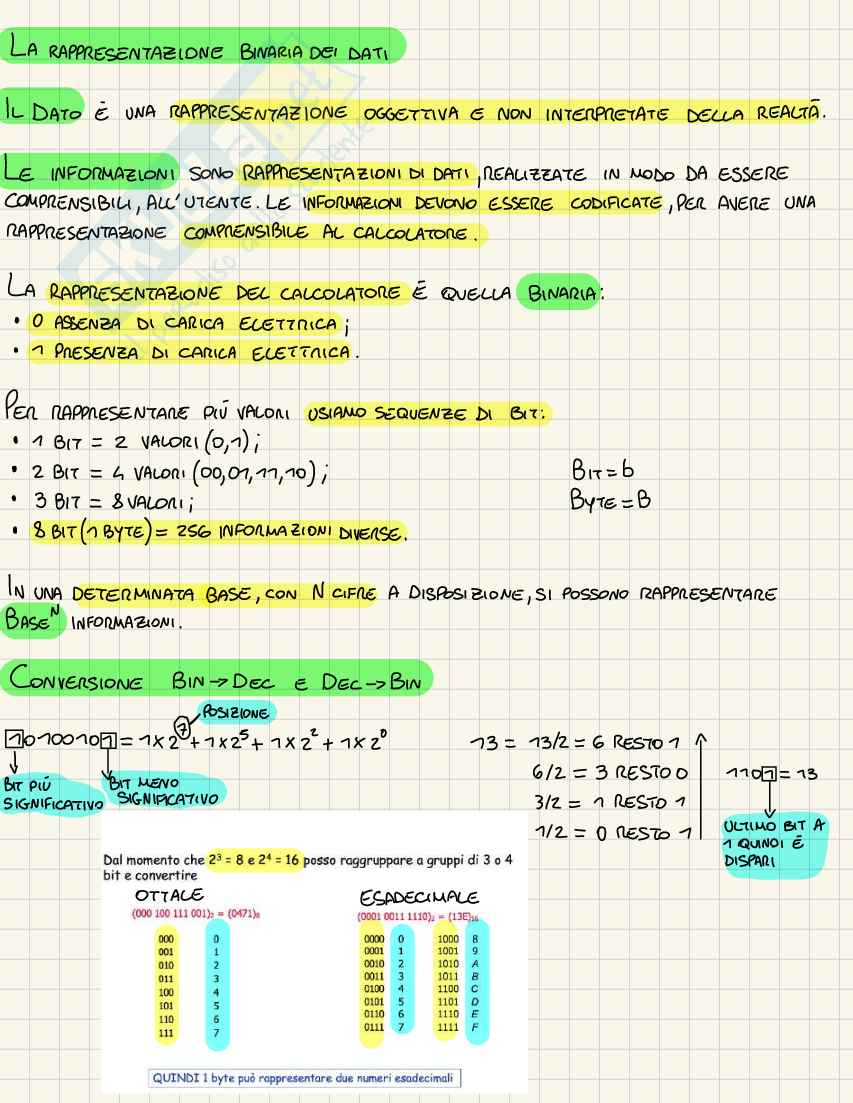 LA RAPPRESENTAZIONE BINARIA DEI DATI
IL DATO È UNA RAPPRESENTAZIONE OGGETTIVA E NON INTERPRETATE DELLA REALTÀ.
LE INFORMAZIONI SONO RAPPRESENTAZIONI DI DATI, REALIZZATE IN MODO DA ESSERE
COMPRENSIBILI, ALL'UTENTE. LE INFORMAZIONI DEVONO ESSERE CODIFICATE, PER AVERE UNA
RAPPRESENTAZIONE COMPRENSIBILE AL CALCOLATORE.
LA RAPPRESENTAZIONE DEL CALCOLATORE È QUELLA BINARIA:
• 0 ASSENZA DI CARICA ELETTRICA;
• 1 PRESENZA DI CARICA ELETTRICA.
PER RAPPRESENTARE PIÙ VALORI USIAMO SEQUENZE DI BIT:
• 1 BIT = 2 VALORI (0,1);
• 2 BIT = 4 VALORI (00,01,11,10);
• 3 BIT = 8 VALORI;
• 8 BIT (1 BYTE) = 256 INFORMAZIONI DIVERSE.
BIT = b
BYTE = B
IN UNA DETERMINATA BASE, CON N CIFRE A DISPOSIZIONE, SI POSSONO RAPPRESENTARE
BASE^N INFORMAZIONI.
CONVERSIONE BIN → DEC E DEC → BIN
POSIZIONE
10100101 = 1×2^7 + 1×2^5 + 1×2^2 + 1×2^0
BIT PIÙ
SIGNIFICATIVO
BIT MENO
SIGNIFICATIVO
13 = 13/2 = 6 RESTO 1
6/2 = 3 RESTO 0
3/2 = 1 RESTO 1
1/2 = 0 RESTO 1
1101 = 13
ULTIMO BIT A
1 QUINDI È
DISPARI
Dal momento che 2³ = 8 e 2⁴ = 16 posso raggruppare a gruppi di 3 o 4
bit e convertire
OTTALE
(000 100 111 001)₂ = (0471)₈
000 0
001 1
010 2
011 3
100 4
101 5
110 6
111 7
ESADECIMALE
(0001 0011 1110)₂ = (13E)₁₆
0000 0 1000 8
0001 1 1001 9
0010 2 1010 A
0011 3 1011 B
0100 4 1100 C
0101 5 1101 D
0110 6 1110 E
0111 7 1111 F
QUINDI 1 byte può rappresentare due numeri esadecimali
skuola.net